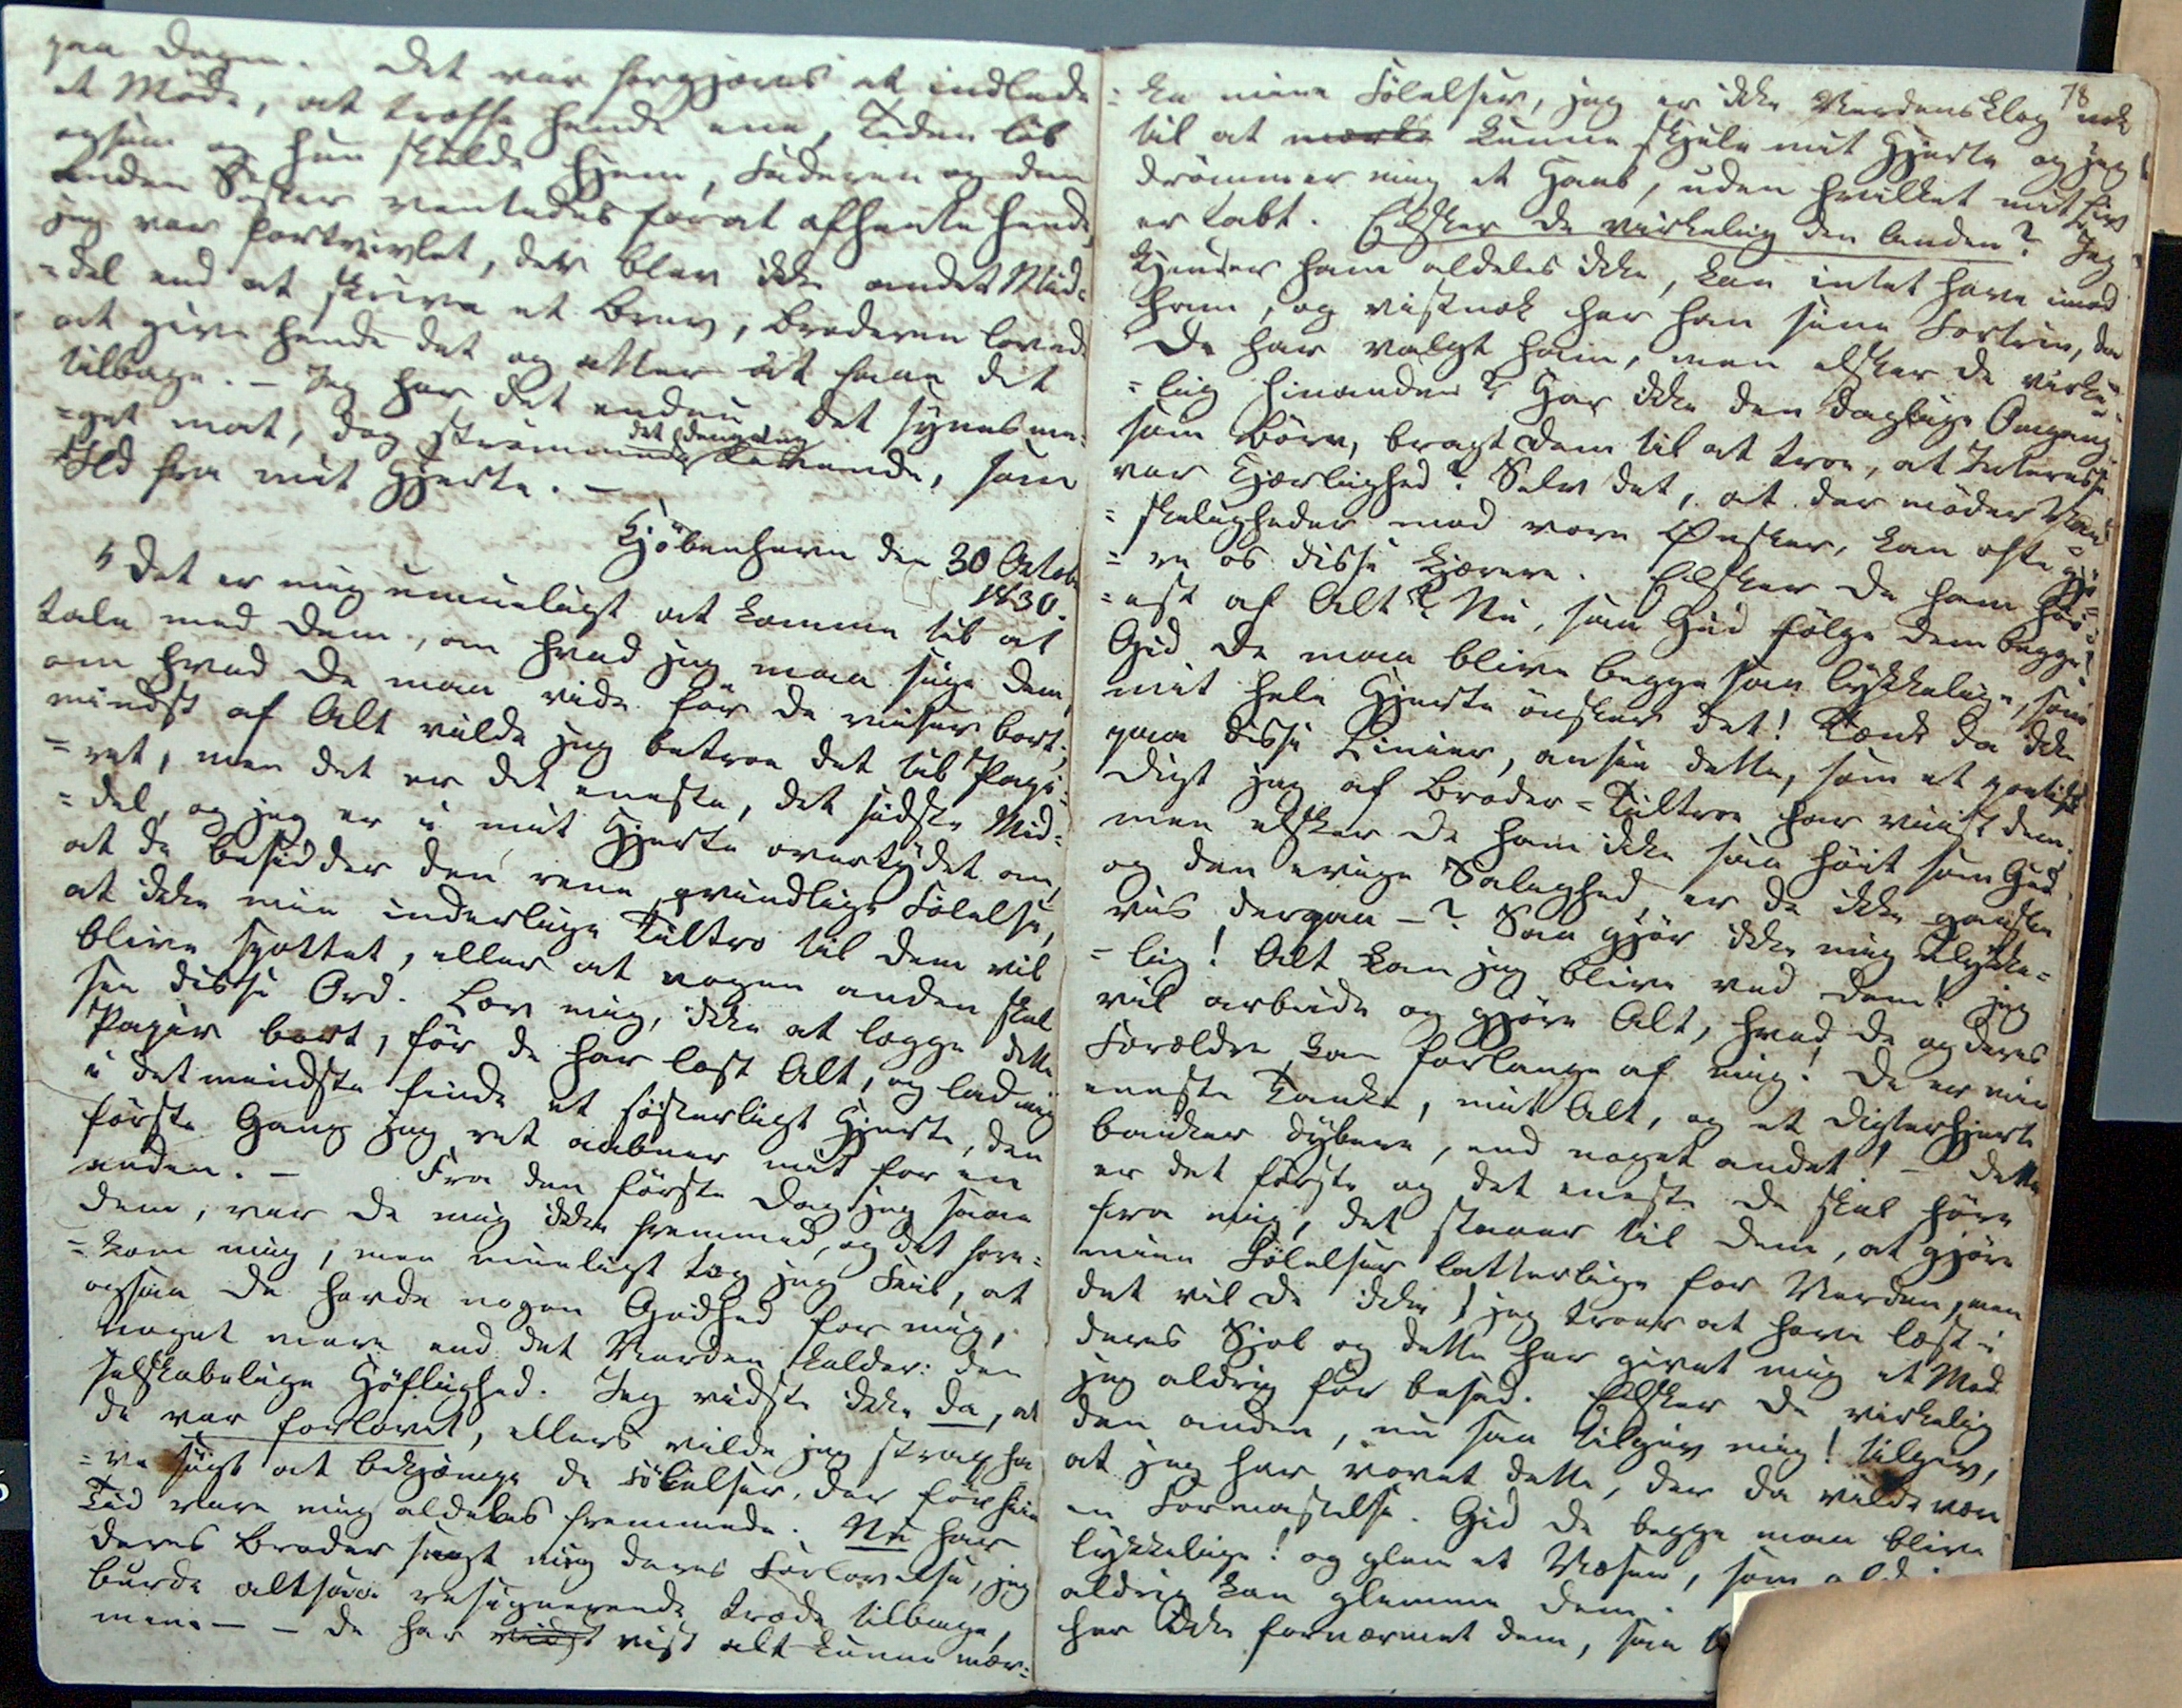 paa Dagen. Det var forgjæves at indlede
et Møde, at træffe hende ene, Tiden løb
ogsaa og hun skulde hjem, Faderen og den
anden Søster ventedes for at afhente hende,
jeg var fortvivlet, der blev ikke andet Mid=
=del end at skrive et Brev, Broderen lovede
at give hende det og atter at faae det
tilbage. – Jeg har det endnu det synes me=
=get mat, dog strømmede det dengang levende, som
Ild fra mit Hjerte. –
Kjöbenhavn den 30 Octob
1830.
"Det er mig umueligt at komme til at
tale med Dem, om hvad jeg maa sige Dem,
om hvad De maa vide før De reiser bort;
mindst af Alt vilde jeg betroe det til Papi=
=ret, men det er det eneste, det sidste Mid=
=del, og jeg er i mit Hjerte overtydet om,
at De besidder den rene qvindlige Følelse,
at ikke min inderlige Tiltro til Dem vil
blive spottet, eller at nogen anden skal
see disse Ord. Lov mig, ikke at lægge dette
Papir bort, før De har læst Alt, og lad mig
i det mindste finde et søsterligt Hjerte, den
første Gang jeg ret aabner mit for en
anden. – Fra den første Dag jeg saae
Dem, var De mig ikke fremmed, og det fore=
=kom mig, men mueligt tog jeg Feil, at
ogsaa De havde nogen Godhed for mig,
noget mere end det Verden kalder: den
selskabelige Høflighed. Jeg vidste ikke da, at
De var forlovet, ellers vilde jeg strax ha
=ve søgt at bekjæmpe de Følelser, der før hiin
Tid vare mig aldeles fremmede. Nu har
Deres Broder sagt mig Deres Forlovelse, jeg
burde altsaa resignerende træde tilbage,
men. – – De har vidst vist alt kunne mær=
78
=ke mine Følelser, jeg er ikke Verdensklog nok
til at mærke kunne skjule mit Hjerte og jeg
drømmer mig et Haab, uden hvilket mit Liv
er tabt. Elsker De virkelig den Anden? Jeg
kjender ham aldeles ikke, kan intet have imod
ham, og vistnok har han sine Fortrin, da
De har valgt ham, men elsker De virke=
=lig hinanden? Har ikke den daglige Omgang
som Børn, bragt Dem til at troe, at Interesse
var Kjærlighed? Selv det, at der møder Van=
=skeligheder mod vore Ønsker, kan ofte gjø=
=re os disse kjærere. Elsker De ham høi=
=est af Alt? Nu, saa Gud følge Dem begge!
Gid De maa blive begge saa lykkelige, som
mit hele Hjerte ønsker det! Tænk da ikke
paa disse Linier, ansee dette, som et poetisk
Digt jeg af Broder=Tiltroe har viist Dem.
men elsker De ham ikke saa høit som Gud
og den evige Salighed, er De ikke ganske
vis derpaa –? Saa gjør ikke mig ulykke=
=lig! Alt kan jeg blive ved Dem! jeg
vil arbeide og gjøre Alt, hvad De og Deres
Forældre kan forlange af mig! De er min
eneste Tanke, mit Alt, og et Digterhjerte
banker dybere, end noget andet! – Dette
er det første og det eneste De skal høre
fra mig, det staaer til Dem, at gjøre
mine Følelser latterlige for Verden, men
det vil De ikke! jeg troer at have læst i
Deres Sjæl og dette har givet mig et Mod
jeg aldrig før besad. Elsker De virkelig
den anden, nu saa tilgiv mig! tilgiv,
at jeg har vovet dette, der da vilde være
en Formastelse. Gid De begge maa blive
lykkelige! og glem et Væsen, som
aldrig kan glemme Dem.
har ikke fornærmet Dem, saa